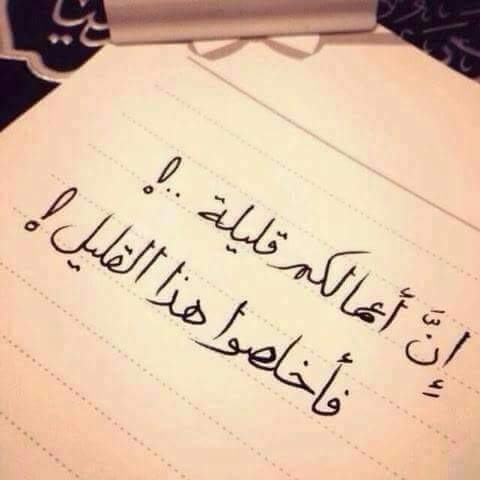 إنَّ أعمالكم قليلة ..!
فأخلصوا هذا القليل!